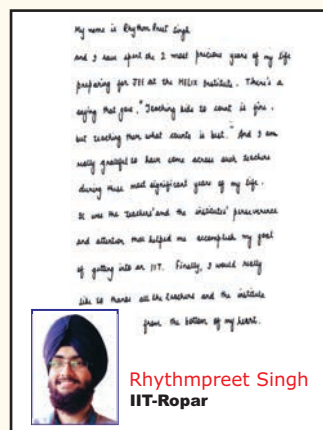 My name is Rhythm Preet Singh
and I have spent the 2 most precious years of my life
preparing for JEE at the HELIX Institute. There's a
saying that goes, "Teaching kids to count is fine,
but teaching them what counts is best." And I am
really grateful to have come across such teachers
during these most significant years of my life.
It was the teachers' and the institutes' perseverence
and attention that helped me accomplish my goal
of getting into an IIT. Finally, I would really
like to thank all the teachers and the institute
from the bottom of my heart.
Rhythmpreet Singh
IIT-Ropar